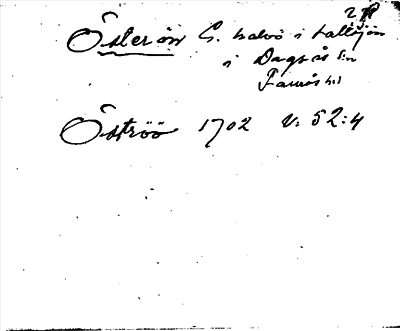 Österön S. halvö i Tallsjön
i Dagsås sn
Fauråshd
Öströö 1702 V: 52:4